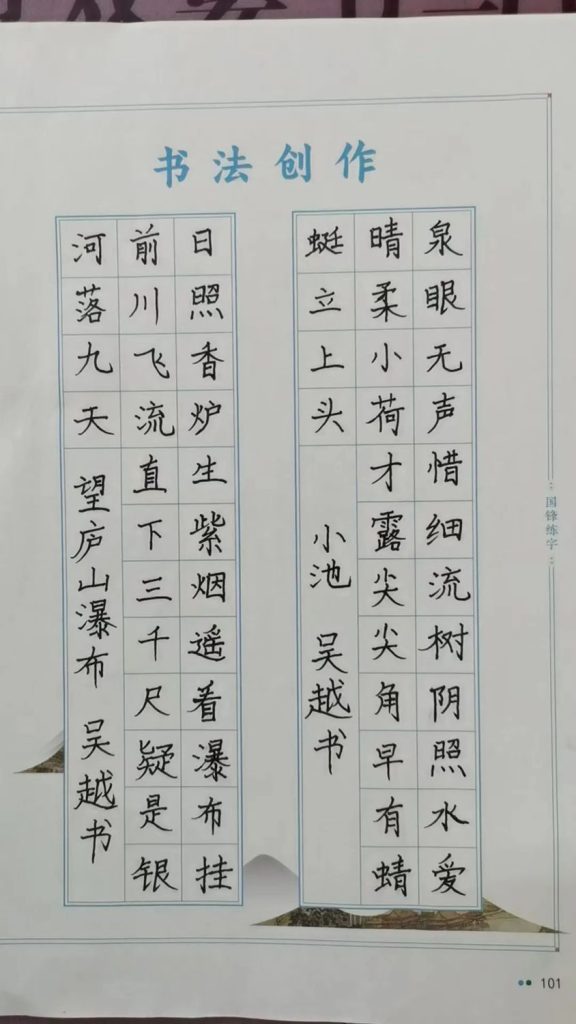 书法创作
泉眼无声惜细流树阴照水爱
晴柔小荷才露尖尖角早有蜻
蜓立上头
小池 吴越书
日照香炉生紫烟遥看瀑布挂
前川飞流直下三千尺疑是银
河落九天
望庐山瀑布 吴越书
国锋练字
101